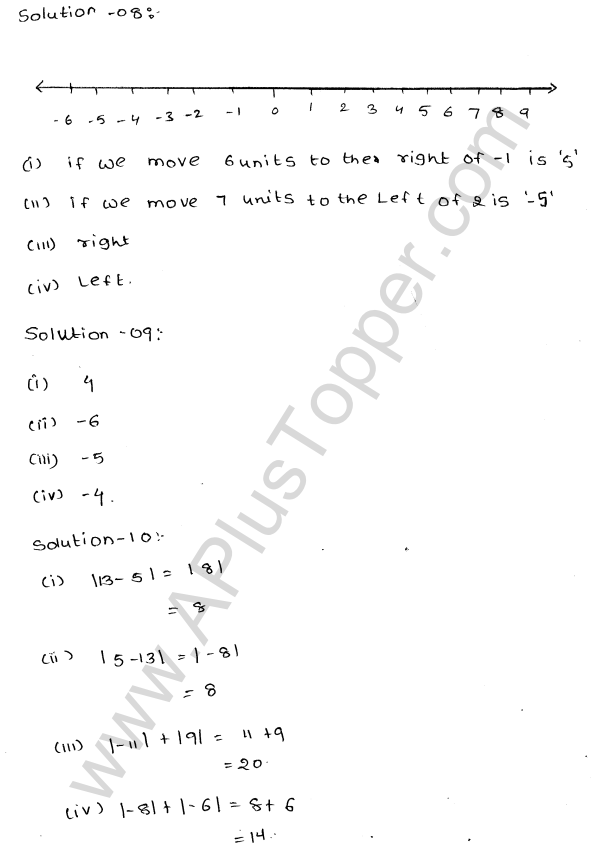 Solution -08:-
-6 -5 -4 -3 -2 -1 0 1 2 3 4 5 6 7 8 9
(i) if we move 6 units to the right of -1 is '5'
(ii) if we move 7 units to the Left of 2 is '-5'
(iii) right
(iv) Left.
Solution -09:-
(i) 4
(ii) -6
(iii) -5
(iv) -4.
Solution-10:-
(i) |13-5| = |8|
= 8
(ii) |5-13| = |-8|
= 8
(iii) |-11| + |9| = 11 +9
= 20.
(iv) |-8| + |-6| = 8+ 6
= 14.
www.APlusTopper.com